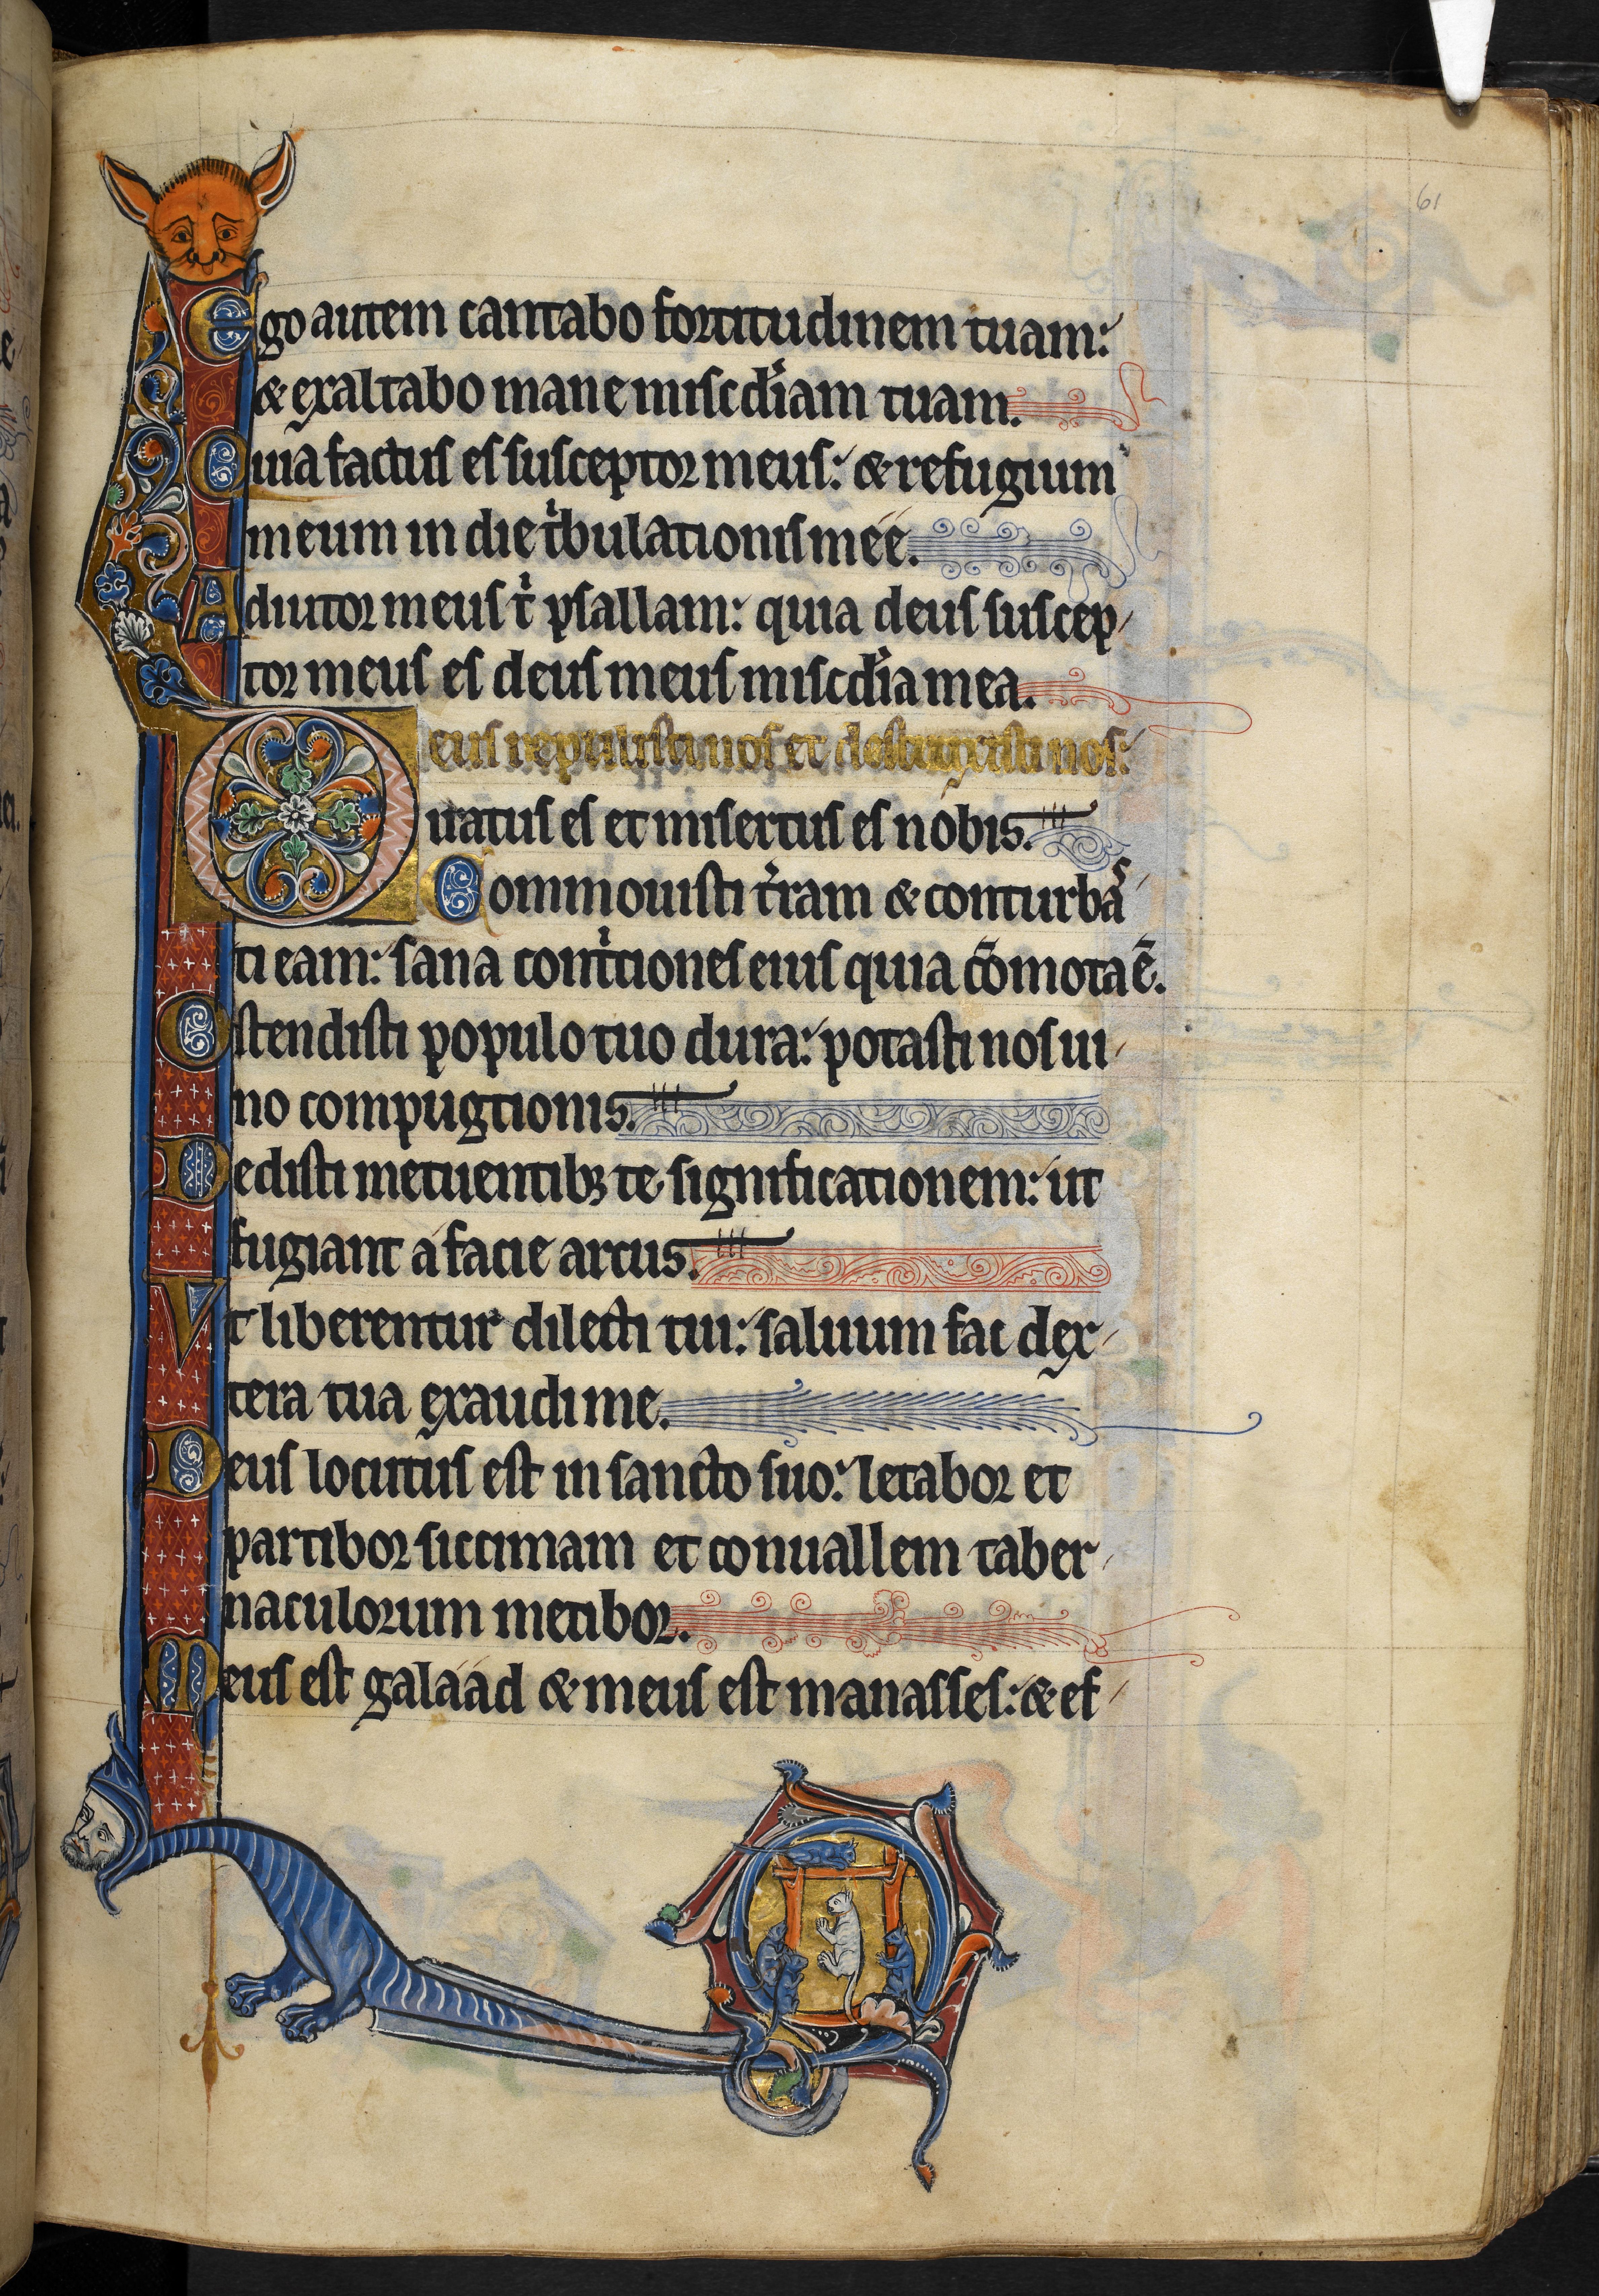 61
Ego autem cantabo fortitudinem tuam:
& exaltabo mane misc̄diam tuam.
Quia factus es susceptor meus: & refugium
meum in die tⁱbulationis meę.
Adiutor meus tⁱ psallam: quia deus suscep
tor meus es deus meus misc̄dia mea.
Deus reppulisti nos et destruxisti nos:
iratus es et misertus es nobis.
Commouisti t̄ram & conturbaˢ
ti eam: sana contⁱtiones eius quia cōmota ē.
Ostendisti populo tuo dura: potasti nos ui
no compugtionis.
Dedisti metuentibꝫ te significationem: ut
fugiant a facie arcus.
Vt liberentur dilecti tui: saluum fac dex
tera tua exaudi me.
Deus locutus est in sancto suo: letabor et
partibor siccimam et conuallem taber
naculorum metibor.
Meus est galaad & meus est manasses: & ef